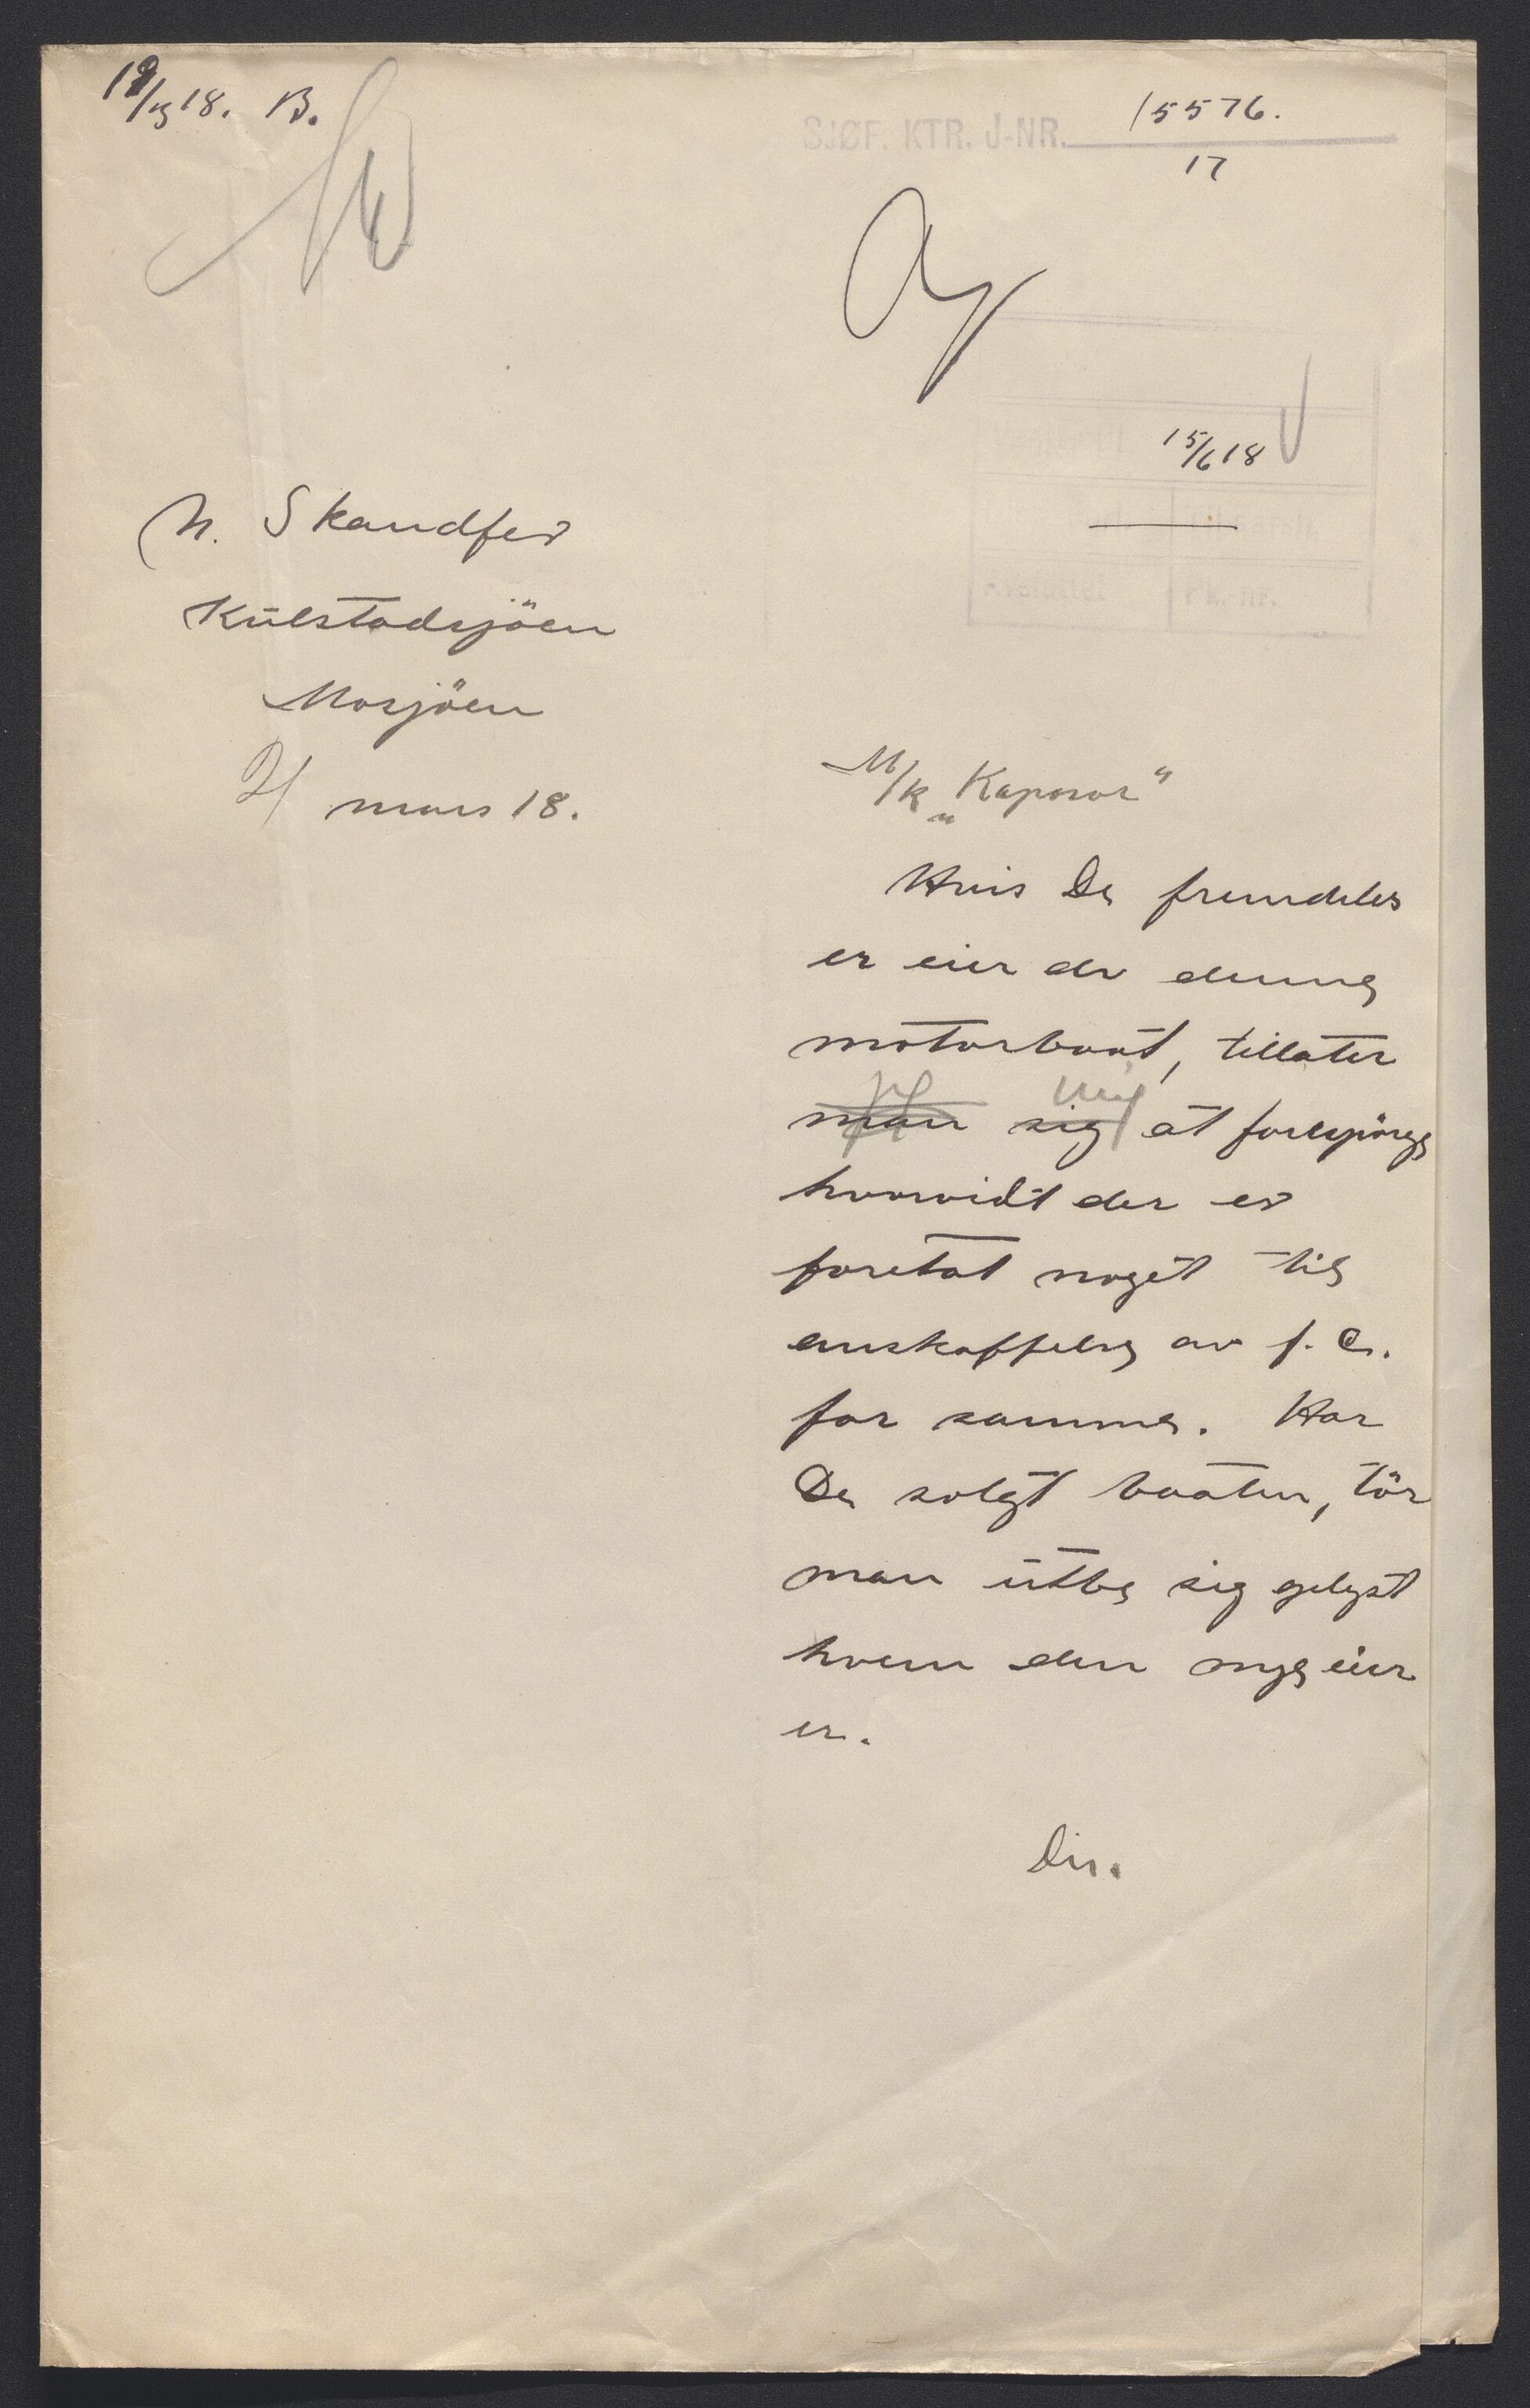 19/3 18. B.
SJØF. KTR. J-NR. 15576.
17
15/6 18
N. Skandfer
Kulstadsjöen
Mosjöen
21 mars 18.
M/k „Kaposar"
Hvis De fremdeles
er eier av denne
motorbaat, tillater
man sig at forespörge
hvorvidt der er
foretat noget til
anskaffelse av f. c.
for samme. Har
De solgt baaten, tör
man utbe sig oplyst
hvem den nye eier
er.
Dir.
Pk.-nr.